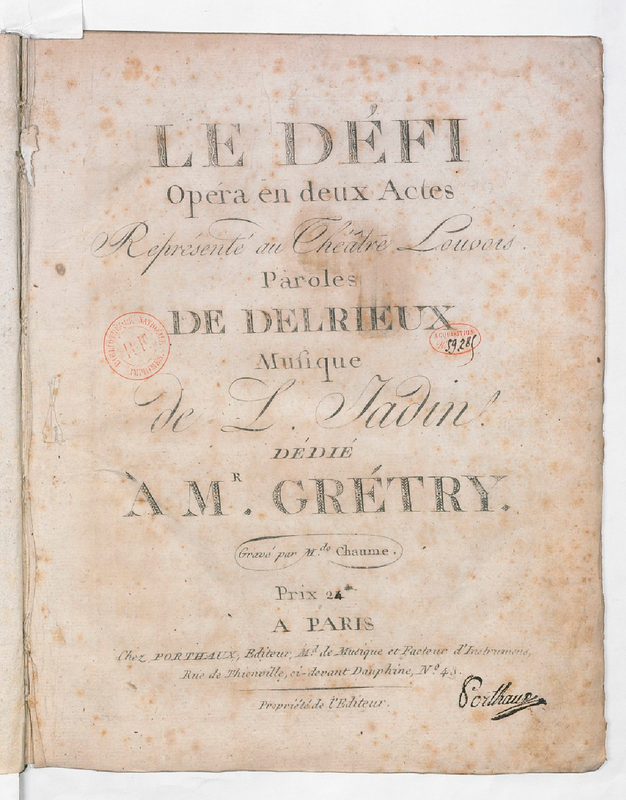 LE DÉFI
Opéra en deux Actes
Représenté au Théâtre Louvois.
Paroles
DE DELRIEUX
ACQUISITION
59,285
Musique
de L. Jadin.
DÉDIÉ
À Mʳ. GRÉTRY.
Gravé par M.de Chaume.
Prix 24
A PARIS
Chez PORTHAUX, Editeur, M.d de Musique et Facteur d'Instrumens,
Rue de Thionville, ci-devant Dauphine, Nº 43.
Propriété de l'Editeur.
Porthaux